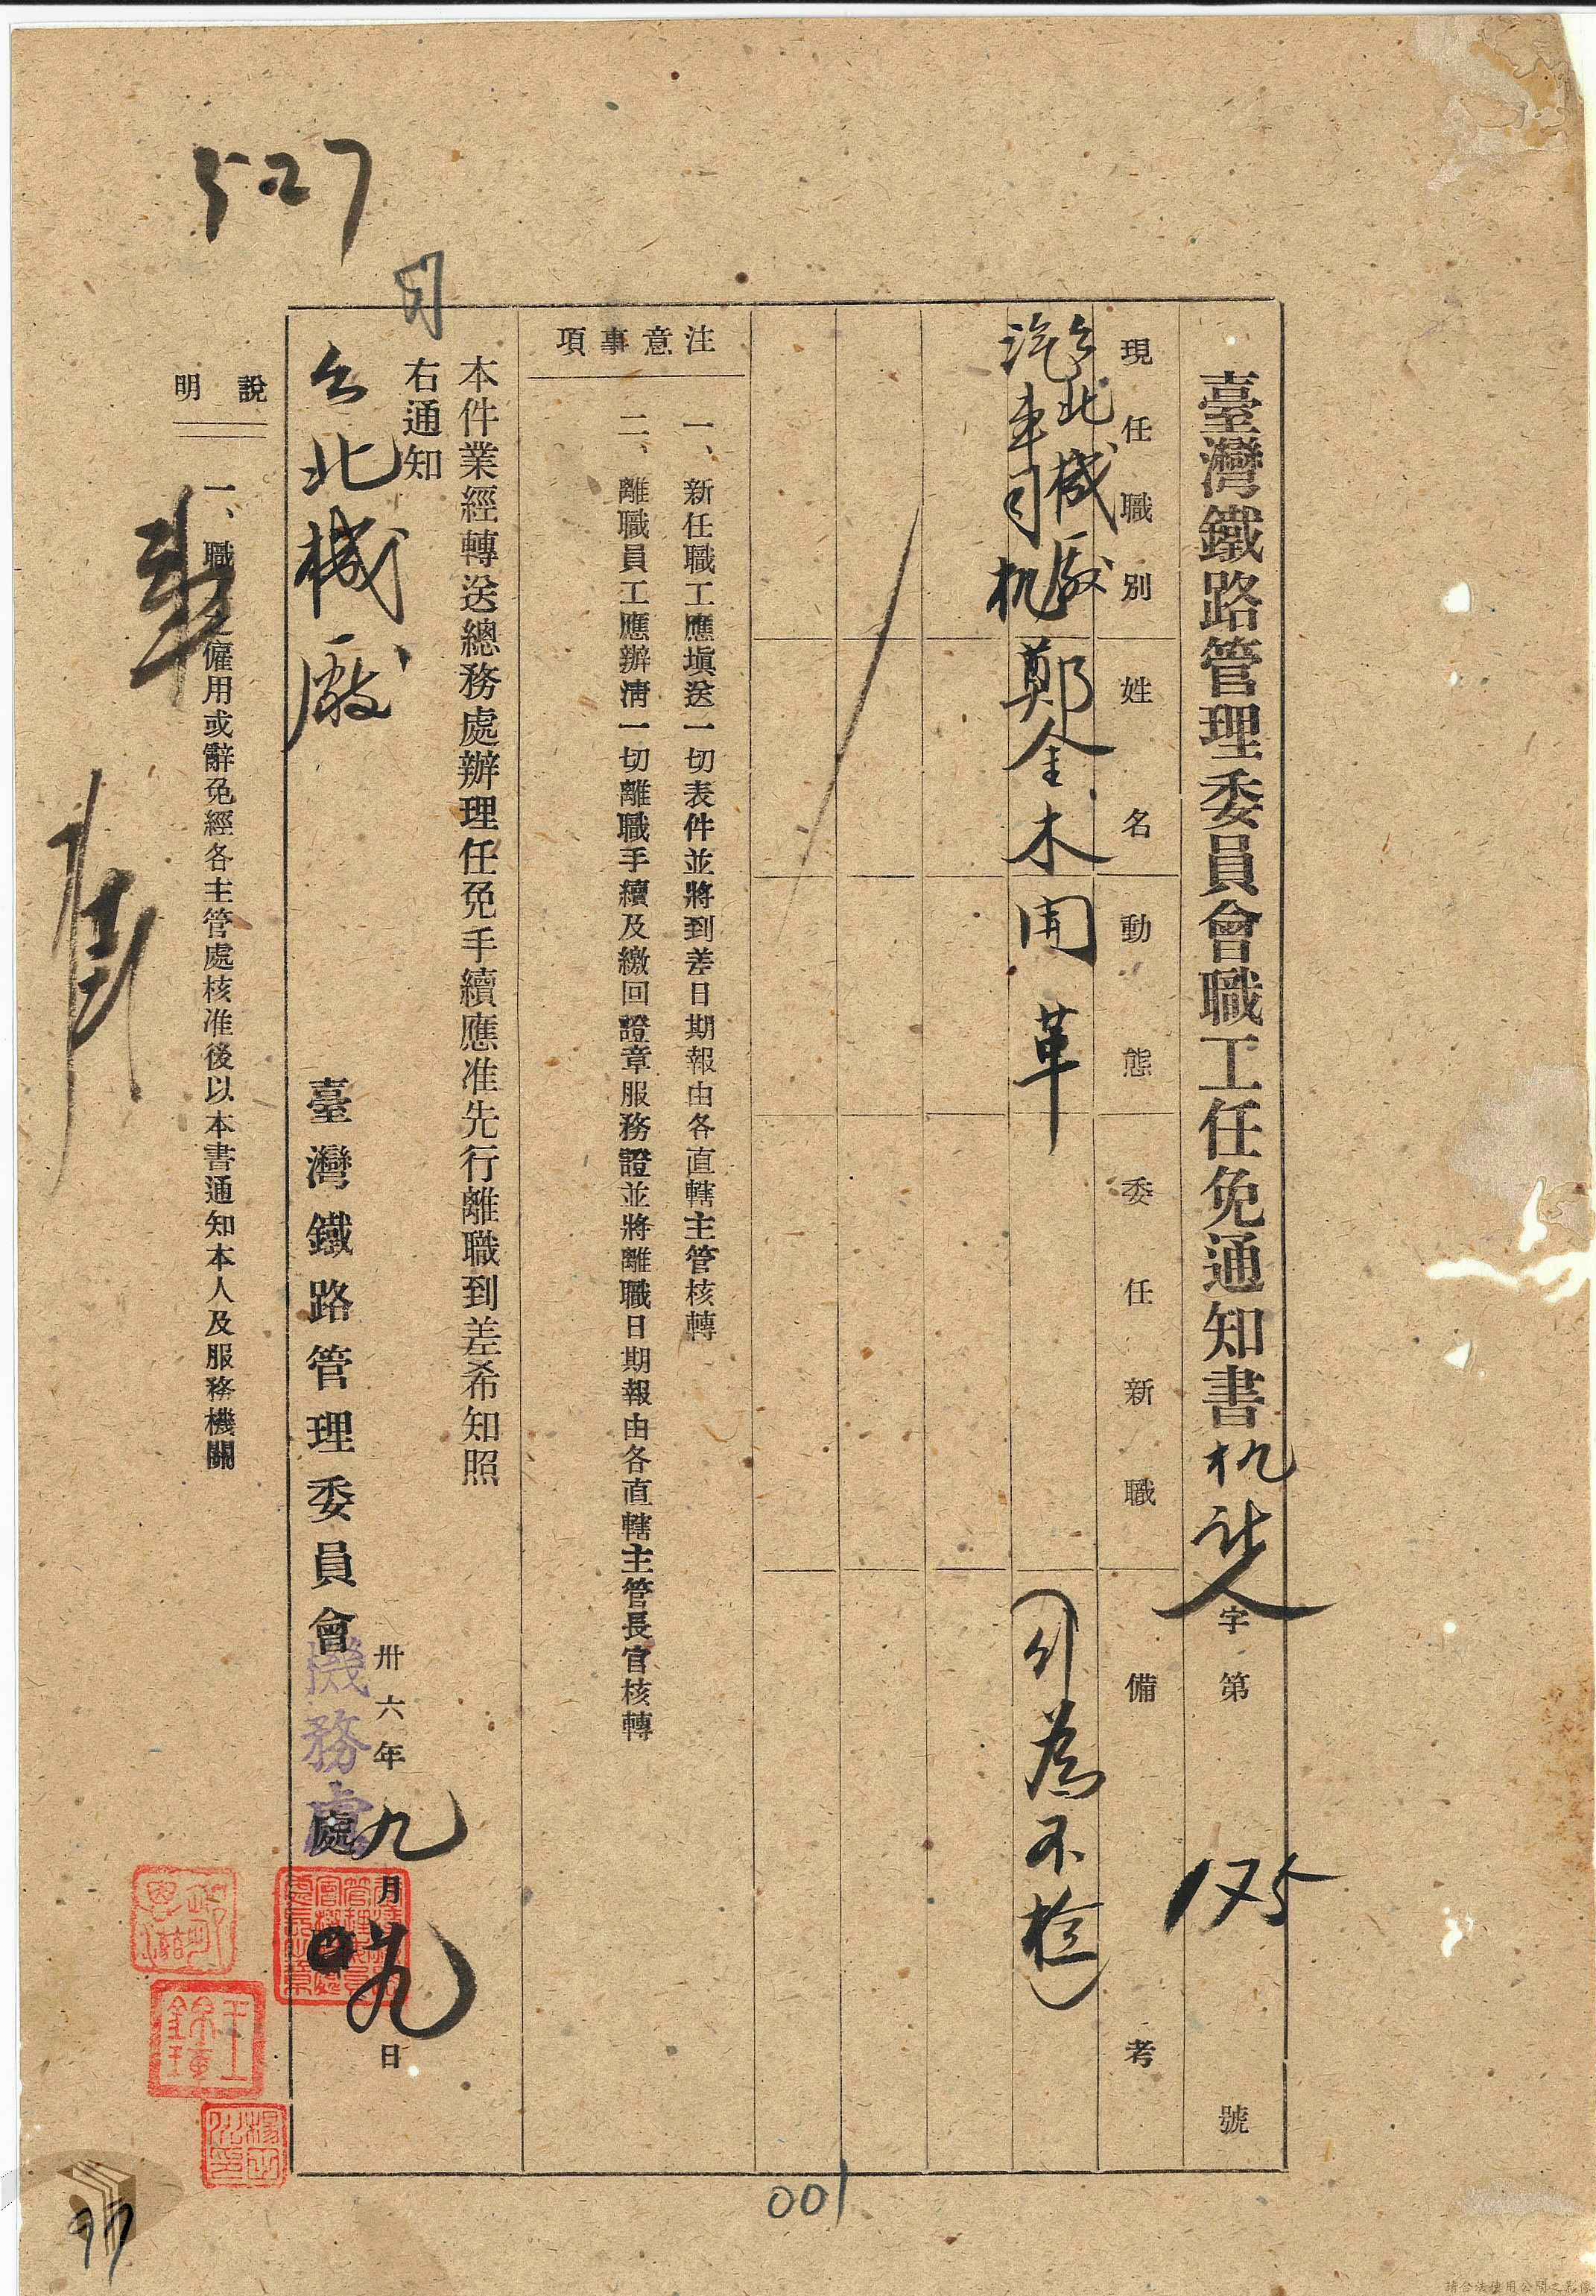 臺灣鐵路管理委員會職工任免通知書 机 人字第175號
現任職別 姓名 動態 委任新職 備考
台北機廠
汽車司机 鄭金木 開革 (行為不檢)
注意事項
一、新任職工應填送一切表件並將到差日期報由各直轄主管核轉
二、離職員工應辦清一切離職手續及繳回證章服務證並將離職日期報由各直轄主管長官核轉
本件業經轉送總務處辦理任免手續應准先行離職到差希知照
右通知
台北機廠
卅六年九月 九日
臺灣鐵路管理委員會機務處處
說明
一、職 僱用或辭免經各主管處核准後以本書通知本人及服務機關
527
001
97
請合法使用公開之影像